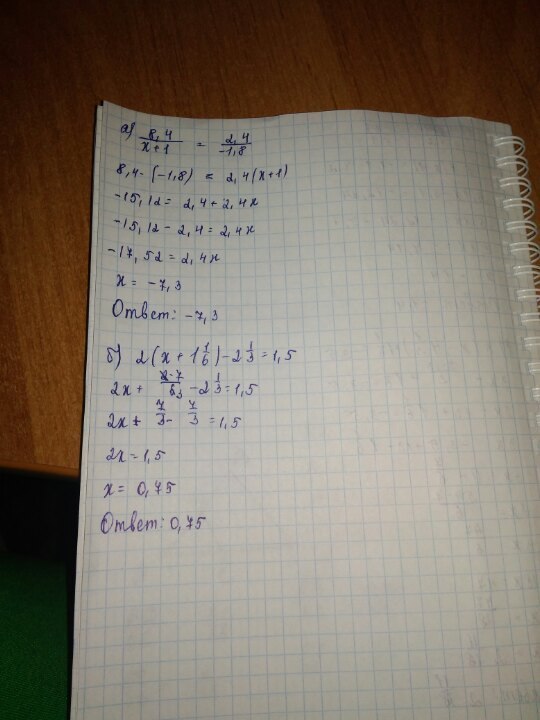 а) 8,4/(x+1) = 2,4/(-1,8)
8,4·(-1,8) = 2,4(x+1)
-15,12 = 2,4+2,4x
-15,12-2,4=2,4x
-17,52=2,4x
x = -7,3
Ответ: -7,3
б) 2(x+1 1/6)-2 1/3=1,5
2x+ 2·7/6 3 -2 1/3=1,5
2x+ 7/3- 7/3 =1,5
2x=1,5
x= 0,75
Ответ: 0,75